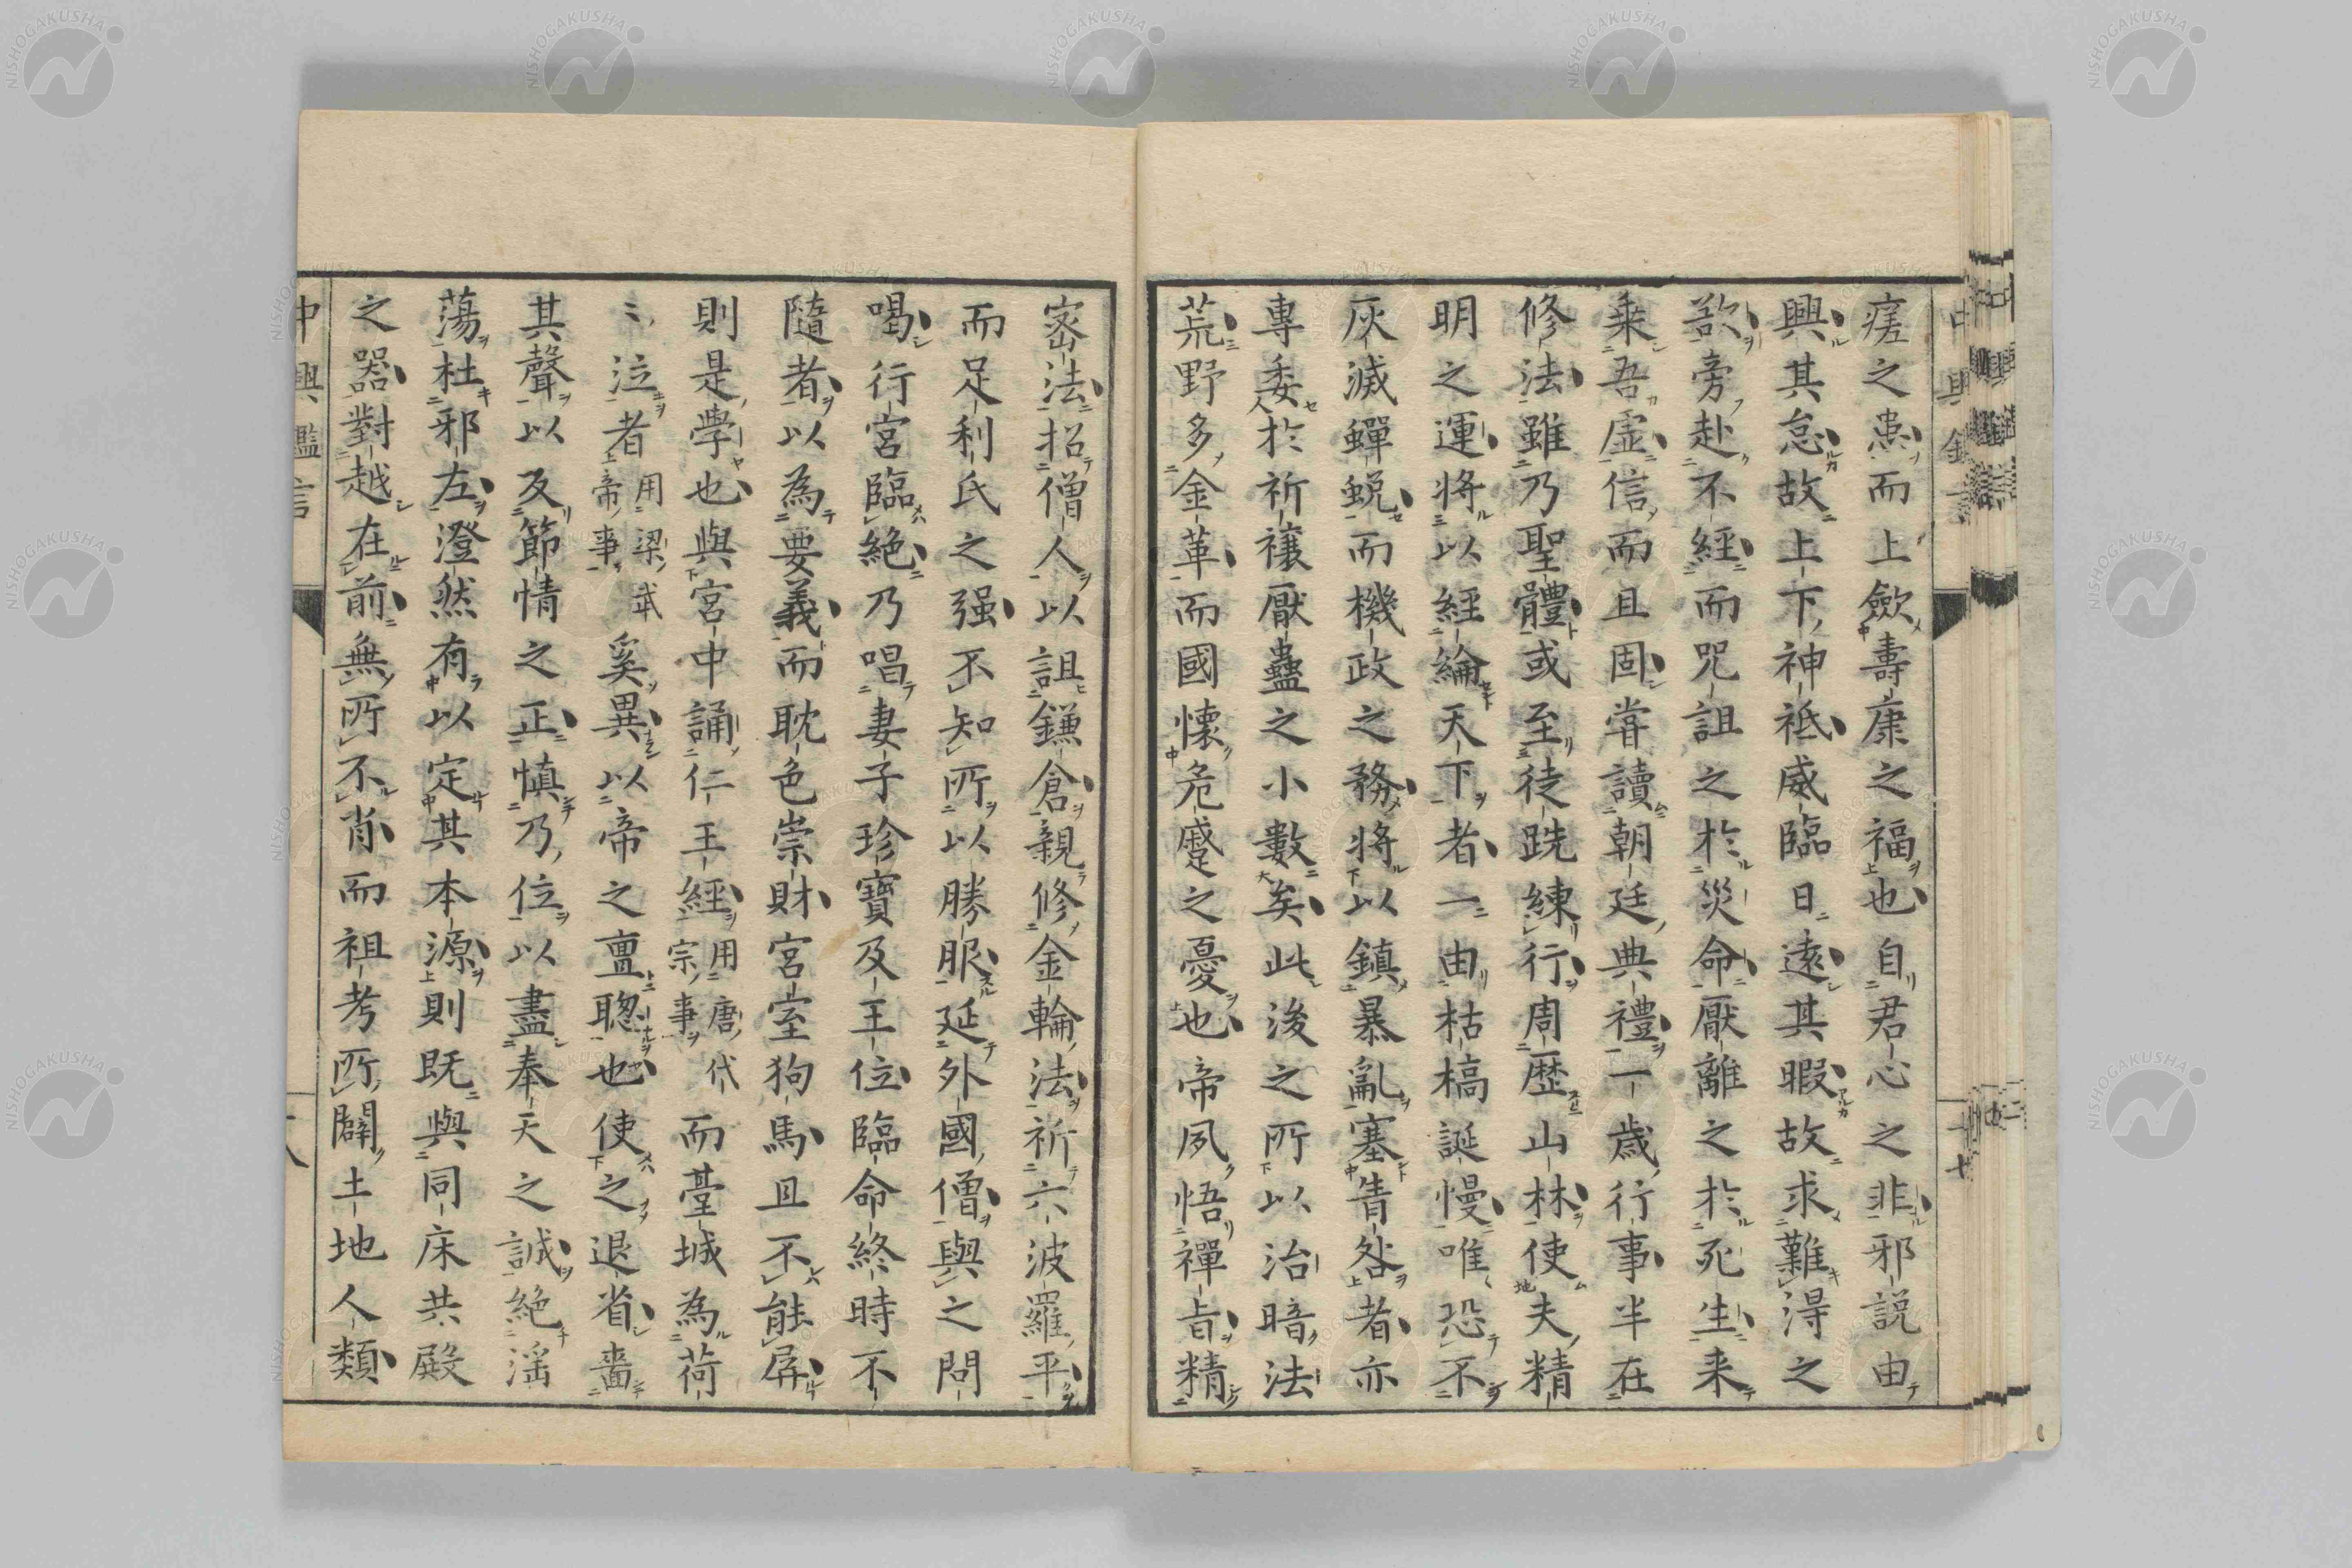 瘥之患而上歛壽康之福也自君心之非邪説由
興其怠故上下神祇威臨日遠其暇故求難得之
歆旁赴不經而咒詛之於災命厭離之於死生来
乗吾虚信而且固甞讀朝廷典禮一歳行事半在
修法雖乃聖體或至徒跣練行周歴山林使夫精
明之運將以經綸天下者一由枯槁誕慢唯恐不
灰滅蟬蛻而機政之務將以鎮暴亂塞眚咎者亦
專委於祈禳厭蠱之小數矣此後之所以治暗法
荒野多金革而國懷危蹙之憂也帝夙悟禪旨精
密法招僧人以詛鎌倉親修金輪法祈六波羅平
而足利氏之强不知所以勝服延外國僧與之問
喝行宮臨絶乃唱妻子珍寶及王位臨命終時不
隨者以為要義而耽色崇財宮室狗馬且不能屏
則是學也與宮中誦仁王經用唐代宗事而臺城為荷
々泣者用梁武帝事奚異以帝之亶聰也使之退省嗇
其聲以及節情之正慎乃位以盡奉天之誠絶滛
蕩杜邪左澄然有以定其本源則既與同床共殿
之器對越在前無所不肖而祖考所闢土地人類
中興鑑言